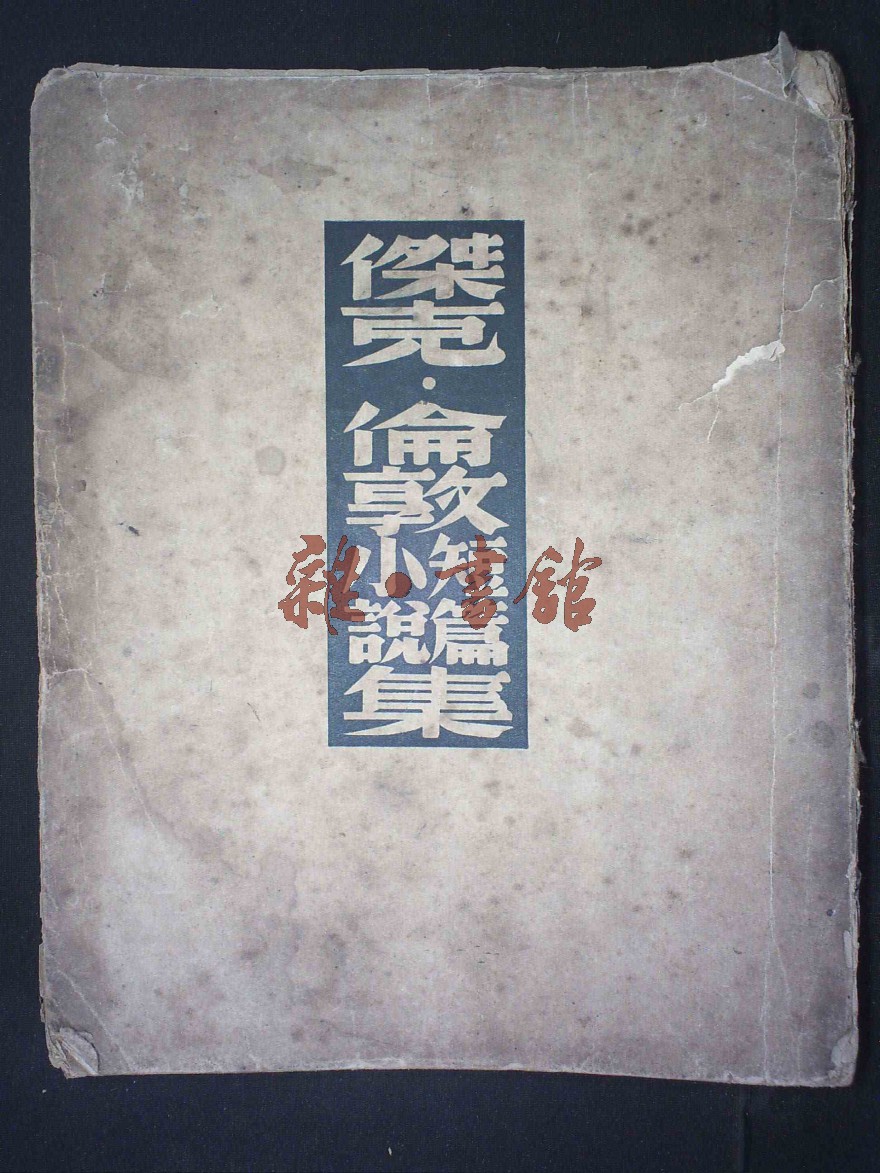 傑克·倫敦短篇小說集
雜·書館